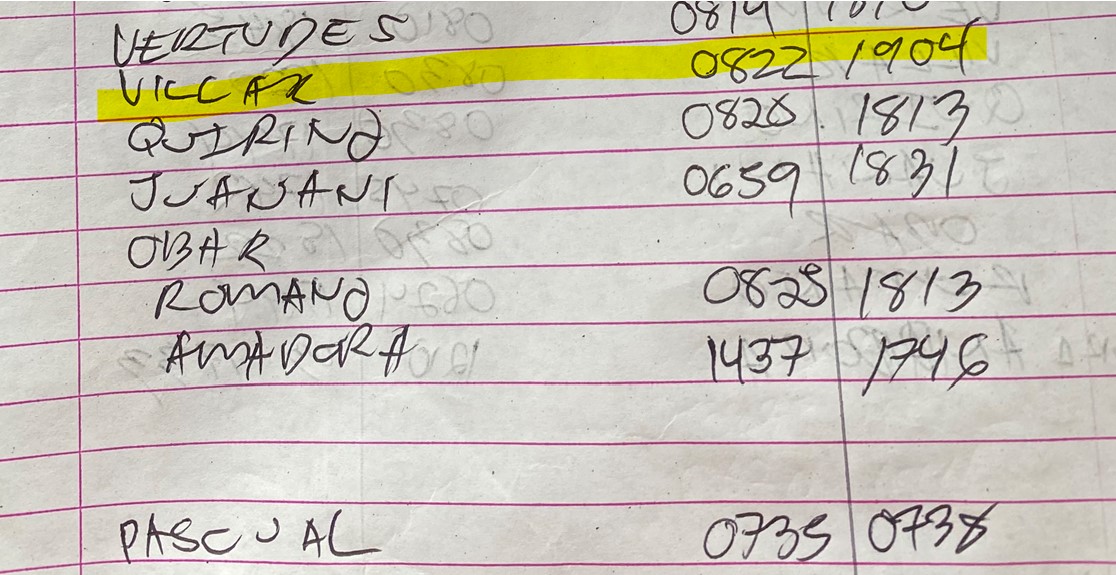 VERTUDES 0819
VILLAR 0822 1904
QUIRINO 0828 1813
JUANANI 0659 1831
OBAR
ROMANO 0825 1813
AMADORA 1437 1746
PASCUAL 0735 0738